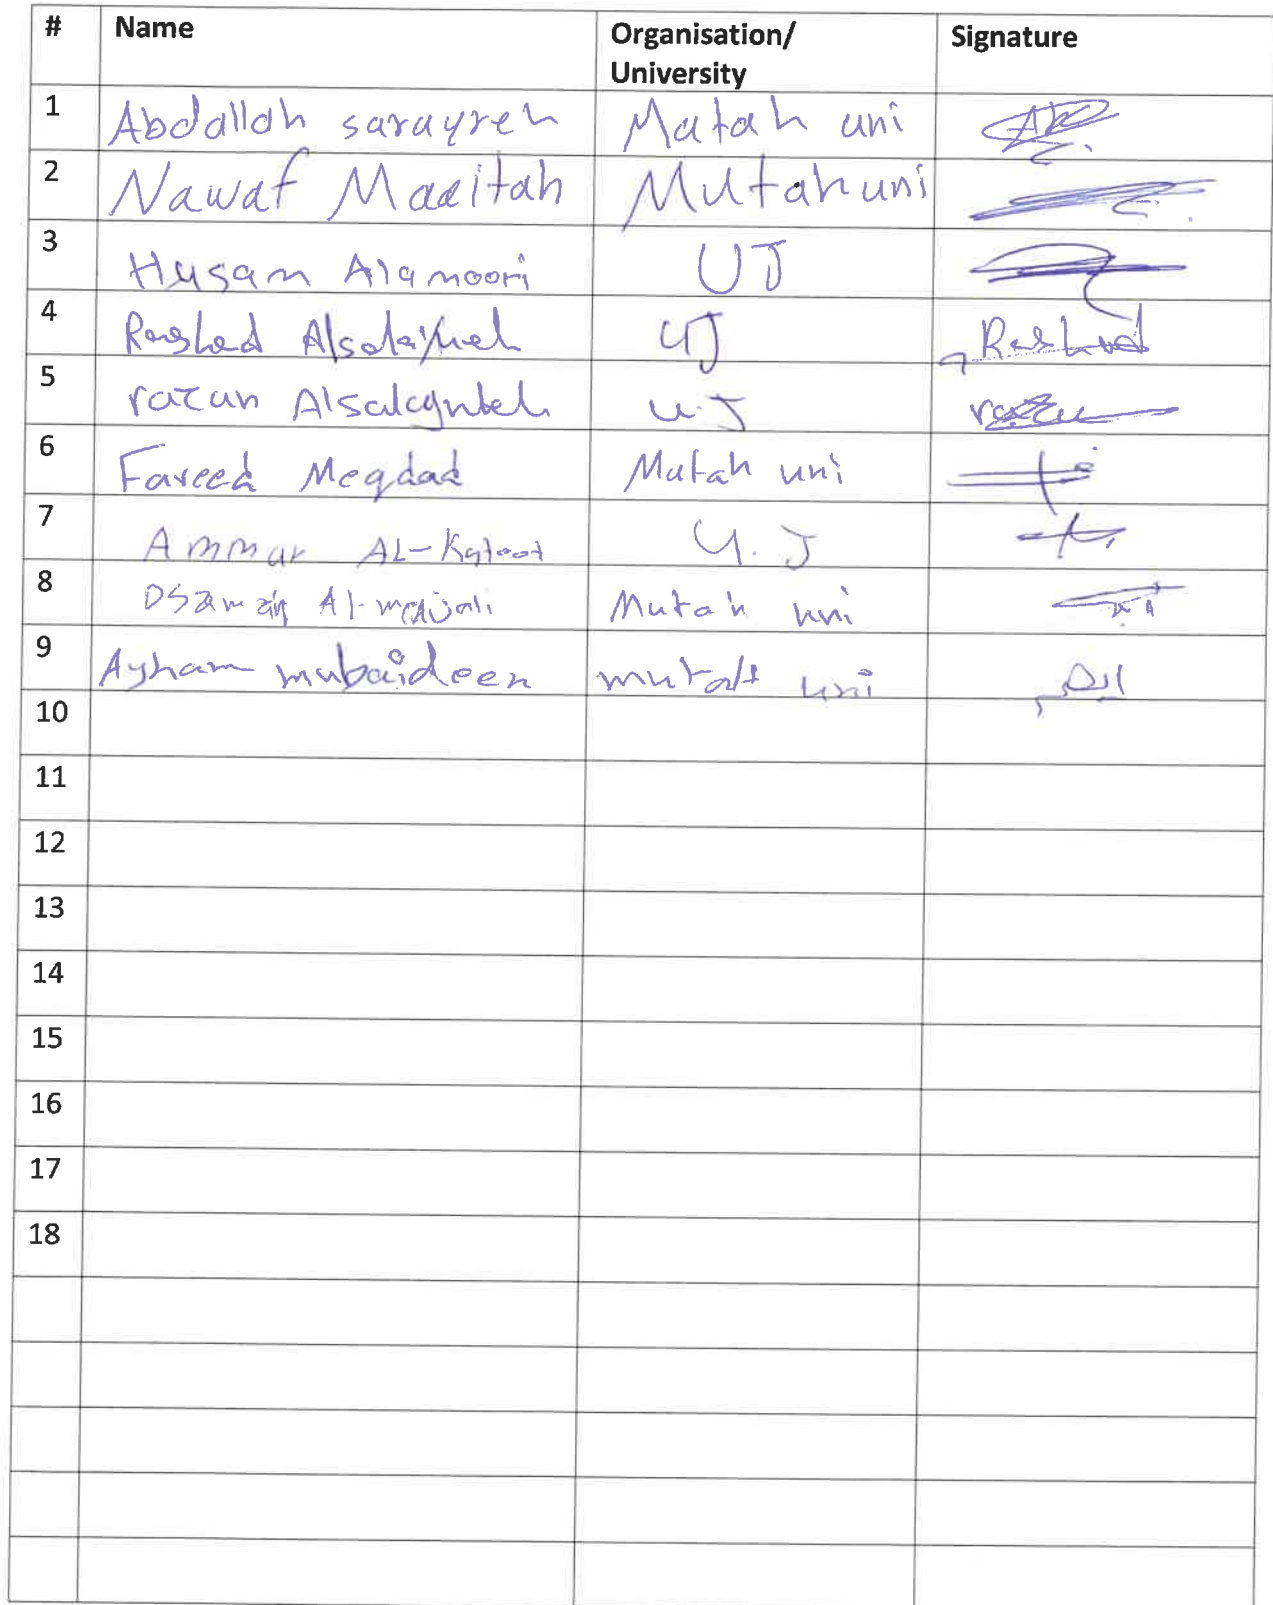 # Name Organisation/ University Signature
1 Abdallah sarayreh Matah uni
2 Nawaf Maaitah Mutah uni
3 Husam Alamoori UJ
4 Rashed UJ Rashed
5 razan U.J
6 Fareed Megdad Mutah uni
7 Ammar AL- U.J
8 Al-majali Mutah uni
9 Ayham mubaideen mutah uni ايهم
10
11
12
13
14
15
16
17
18